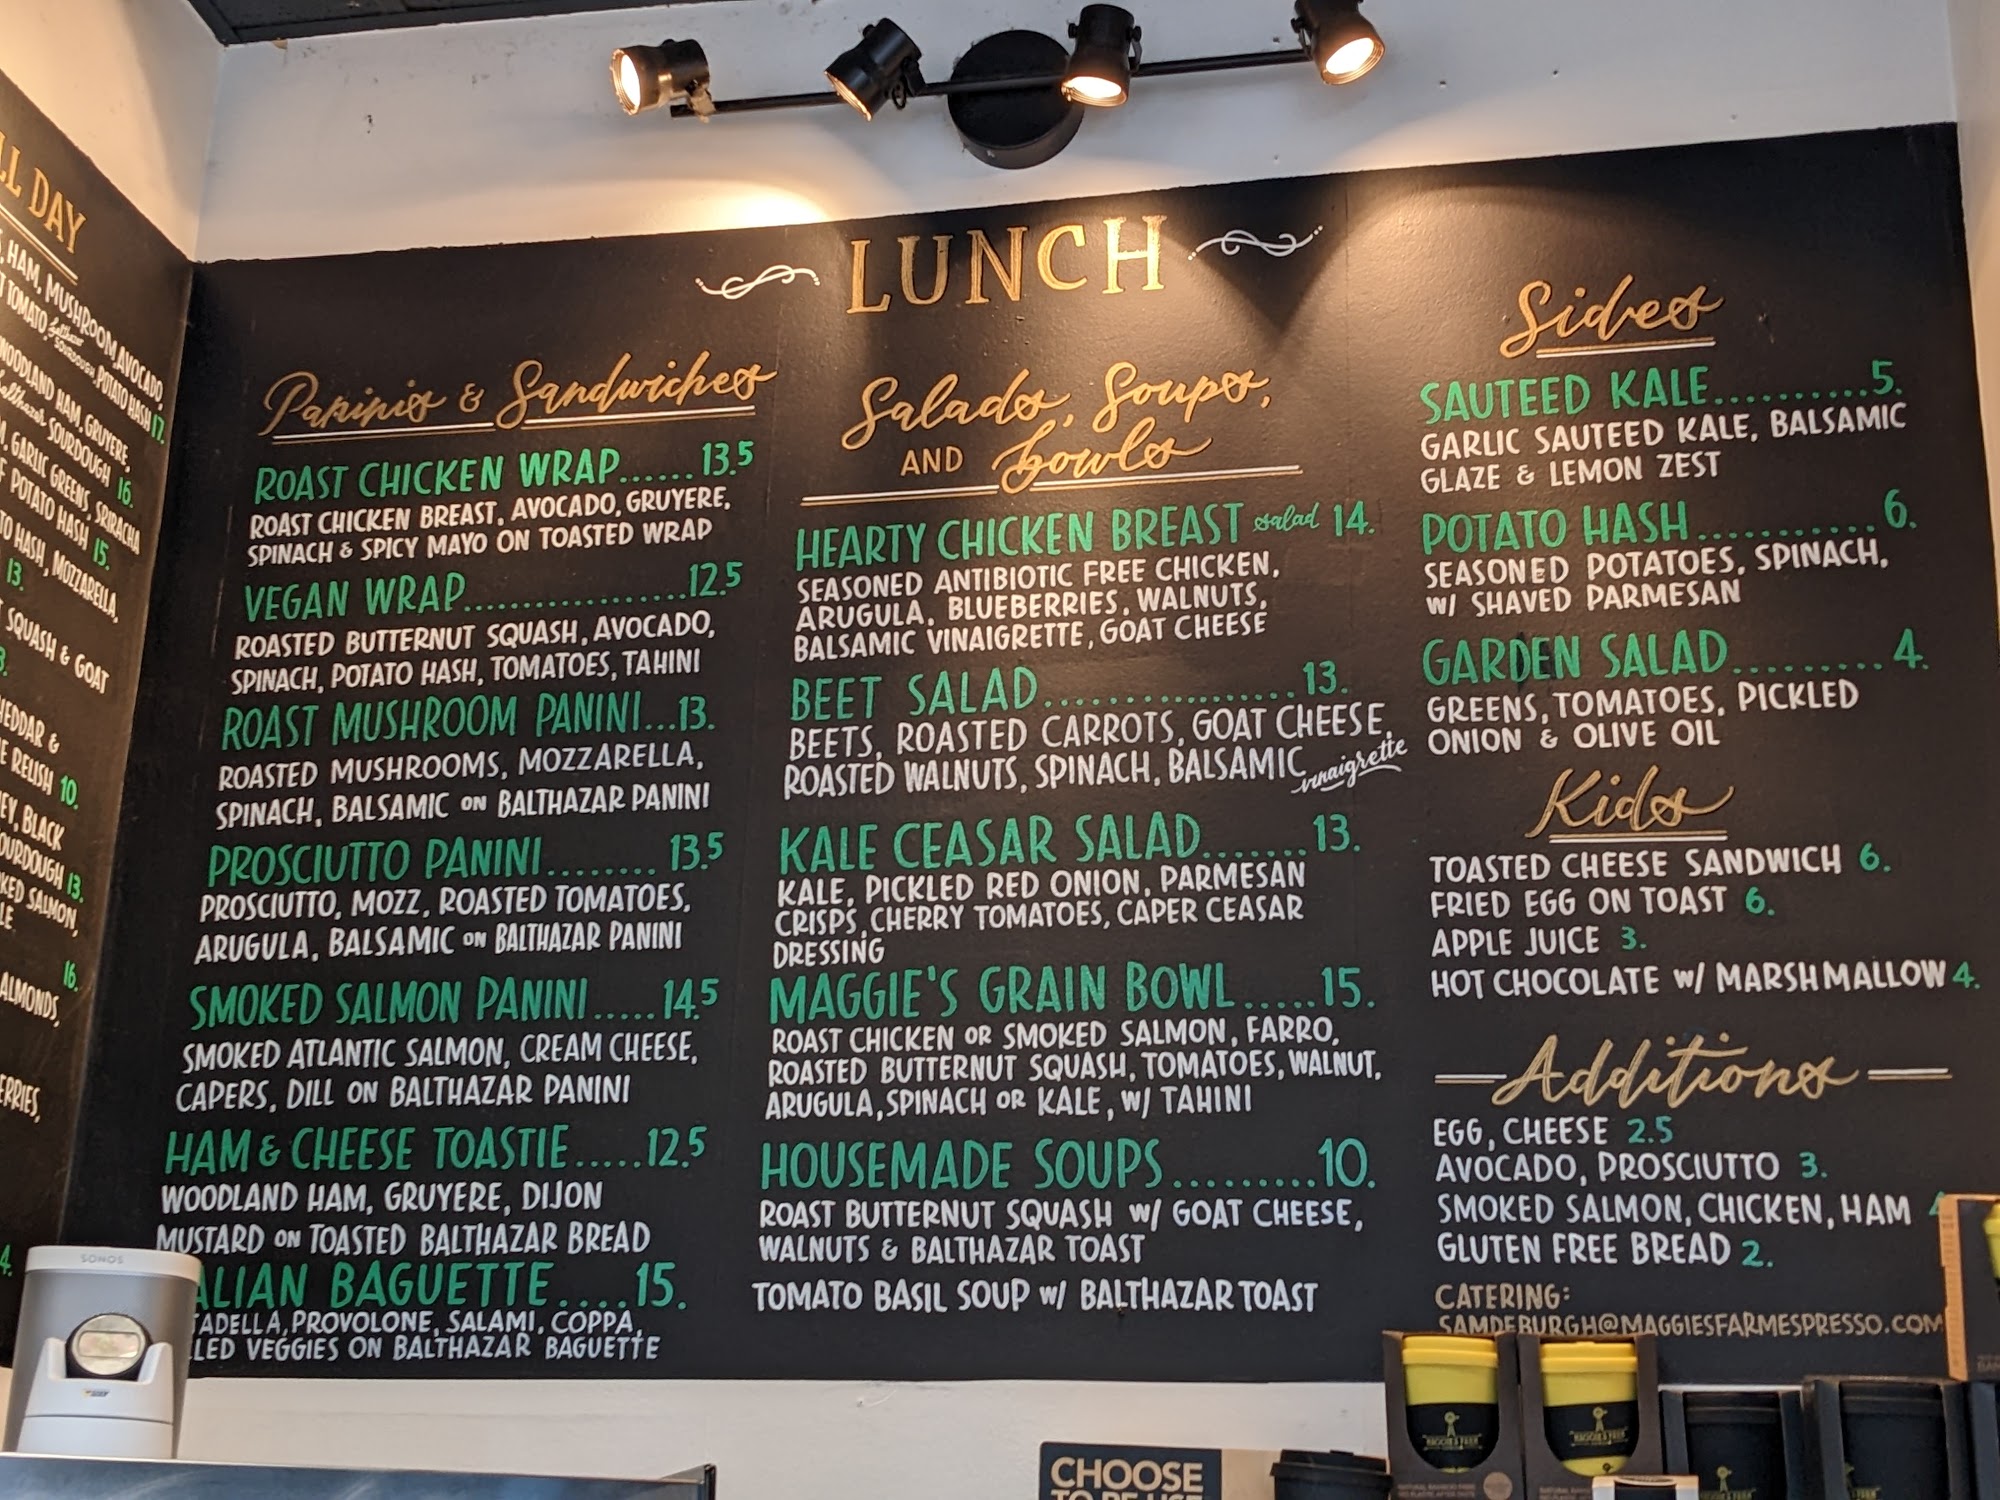 LL DAY
HAM, MUSHROOM, AVOCADO,
TOMATO, Balthazar SOURDOUGH, POTATO HASH 17.
WOODLAND HAM, GRUYERE,
Balthazar SOURDOUGH 16.
GARLIC GREENS, SRIRACHA
POTATO HASH 15.
HASH, MOZZARELLA,
13.
SQUASH & GOAT
HEDDAR &
RELISH 10.
BLACK
OURDOUGH 13.
KED SALMON,
16.
ALMONDS,
ERRIES,
4.
LUNCH
Paninis & Sandwiches
ROAST CHICKEN WRAP......13.5
ROAST CHICKEN BREAST, AVOCADO, GRUYERE,
SPINACH & SPICY MAYO ON TOASTED WRAP
VEGAN WRAP..................12.5
ROASTED BUTTERNUT SQUASH, AVOCADO,
SPINACH, POTATO HASH, TOMATOES, TAHINI
ROAST MUSHROOM PANINI...13.
ROASTED MUSHROOMS, MOZZARELLA,
SPINACH, BALSAMIC ON BALTHAZAR PANINI
PROSCIUTTO PANINI........13.5
PROSCIUTTO, MOZZ, ROASTED TOMATOES,
ARUGULA, BALSAMIC ON BALTHAZAR PANINI
SMOKED SALMON PANINI.....14.5
SMOKED ATLANTIC SALMON, CREAM CHEESE,
CAPERS, DILL ON BALTHAZAR PANINI
HAM & CHEESE TOASTIE.....12.5
WOODLAND HAM, GRUYERE, DIJON
MUSTARD ON TOASTED BALTHAZAR BREAD
ALIAN BAGUETTE....15.
TADELLA, PROVOLONE, SALAMI, COPPA,
LED VEGGIES ON BALTHAZAR BAGUETTE
Salads, Soups,
AND Bowls
HEARTY CHICKEN BREAST salad 14.
SEASONED ANTIBIOTIC FREE CHICKEN,
ARUGULA, BLUEBERRIES, WALNUTS,
BALSAMIC VINAIGRETTE, GOAT CHEESE
BEET SALAD................13.
BEETS, ROASTED CARROTS, GOAT CHEESE,
ROASTED WALNUTS, SPINACH, BALSAMIC vinaigrette
KALE CEASAR SALAD.......13.
KALE, PICKLED RED ONION, PARMESAN
CRISPS, CHERRY TOMATOES, CAPER CEASAR
DRESSING
MAGGIE'S GRAIN BOWL.....15.
ROAST CHICKEN OR SMOKED SALMON, FARRO,
ROASTED BUTTERNUT SQUASH, TOMATOES, WALNUT,
ARUGULA, SPINACH OR KALE, W/ TAHINI
HOUSEMADE SOUPS.........10.
ROAST BUTTERNUT SQUASH W/ GOAT CHEESE,
WALNUTS & BALTHAZAR TOAST
TOMATO BASIL SOUP W/ BALTHAZAR TOAST
Sides
SAUTEED KALE..........5.
GARLIC SAUTEED KALE, BALSAMIC
GLAZE & LEMON ZEST
POTATO HASH...........6.
SEASONED POTATOES, SPINACH,
W/ SHAVED PARMESAN
GARDEN SALAD.........4.
GREENS, TOMATOES, PICKLED
ONION & OLIVE OIL
Kids
TOASTED CHEESE SANDWICH 6.
FRIED EGG ON TOAST 6.
APPLE JUICE 3.
HOT CHOCOLATE W/ MARSHMALLOW 4.
Additions
EGG, CHEESE 2.5
AVOCADO, PROSCIUTTO 3.
SMOKED SALMON, CHICKEN, HAM
GLUTEN FREE BREAD 2.
CATERING:
SAMDEBURGH@MAGGIESFARMESPRESSO.COM
SONOS
CHOOSE